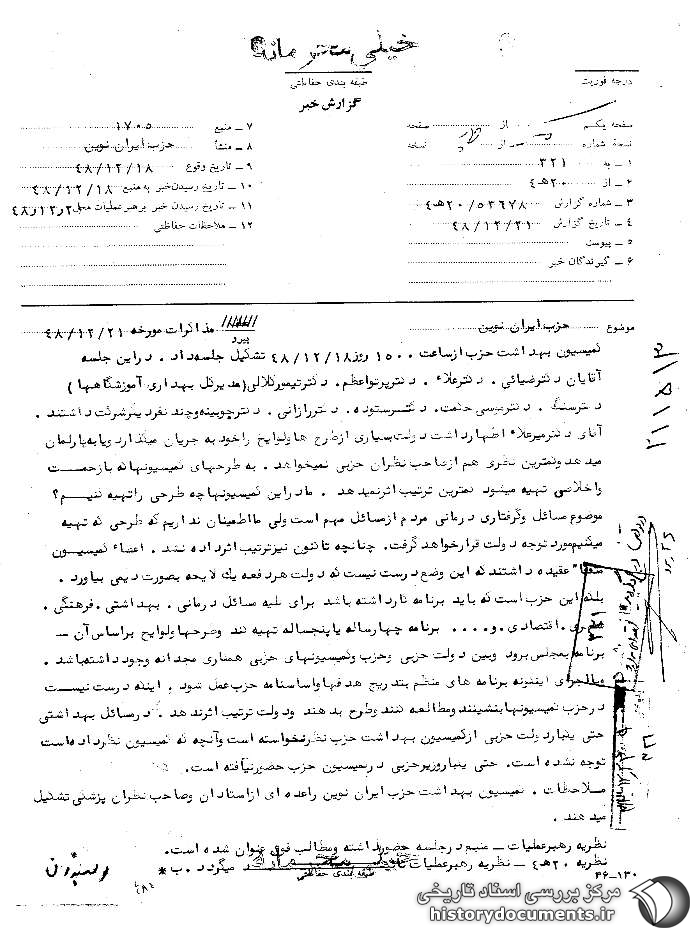 خیلی محرمانه
طبقه بندی حفاظتی
درجه فوریت
گزارش خبر
صفحه یکم از صفحه
نسخهٔ شماره از نسخه
۱ ـ به ۳۲۱
۲ ـ از ۲۰ هـ ۴
۳ ـ شماره گزارش ۲۰/۵۳۶۷۸ هـ ۴
۴ ـ تاریخ گزارش ۴۸/۱۲/۲۱
۵ ـ پیوست
۶ ـ گیرندگان خبر
۷ ـ منبع ۱۷۰۵
۸ ـ منشأ حزب ایران نوین
۹ ـ تاریخ وقوع ۴۸/۱۲/۱۸
۱۰ ـ تاریخ رسیدن خبر به منبع ۴۸/۱۲/۱۸
۱۱ ـ تاریخ رسیدن خبر برهبر عملیات محل
۱۲ ـ ملاحظات حفاظتی
موضوع حزب ایران نوین
پیرو مذاکرات مورخه ۴۸/۱۲/۲۱
کمیسیون بهداشت حزب از ساعت ۱۵۰۰ روز ۴۸/۱۲/۱۸ تشکیل جلسه داد . در این جلسه
آقایان دکتر ضیائی . دکتر علاء . دکتر پرتو اعظم . دکتر تیمور کلالی (مدیر کل بهداری آموزشگاهها )
دکتر سنگ . دکتر موسی حکمت . دکتر ستوده . دکتر رازانی . دکتر چوبینه و چند نفر دیگر شرکت داشتند .
آقای دکتر میرعلاء اظهار داشت دولت بسیاری از طرح ها و لوایح را خود به جریان میگذارد و یا به پارلمان
میدهد و کمترین نظری هم از صاحب نظران حزبی نمیخواهد . به طرحهای کمیسیونها که با زحمت
و اخلاص تهیه میشود کمترین ترتیب اثر نمیدهد . ما در این کمیسیونها چه طرحی را تهیه کنیم ؟
موضوع مسائل و گرفتاری درمانی مردم از مسائل مهم است ولی ما اطمینان نداریم که طرحی که تهیه
میکنیم مورد توجه دولت قرار خواهد گرفت . چنانچه تا کنون نیز ترتیب اثر داده نشد . اعضاء کمیسیون
عقیده داشتند که این وضع درست نیست که دولت هر دفعه یک لایحه بصورت دیمی بیاورد .
بلکه این حزب است که باید برنامه کار داشته باشد برای کلیه مسائل درمانی . بهداشتی . فرهنگی .
اقتصادی . و . . . . برنامه چهار ساله یا پنجساله تهیه کند و طرحها و لوایح بر اساس آن ـ
برنامه بمجلس برود و بین دولت حزبی و حزب و کمیسیونهای حزبی همکاری مجدانه وجود داشته باشد .
و با اجرای اینگونه برنامه های منظم بتدریج هدفها و اساسنامه حزب عمل شود . اینکه درست نیست
در حزب کمیسیونها بنشینند و مطالعه کنند و طرح بدهند و دولت ترتیب اثر ندهد . در مسائل بهداشتی
حتی یکبار دولت حزبی از کمیسیون بهداشت حزب نظر نخواسته است و آنچه که کمیسیون نظر داده است
توجه نشده است . حتی یکبار وزیر حزبی در کمیسیون حزب حضور نیافته است .
ملاحظات . کمیسیون بهداشت حزب ایران نوین را عده ای از استادان و صاحب نظران پزشکی تشکیل
میدهند .
نظریه رهبر عملیات ـ منبع در جلسه حضور داشته و مطالب فوق عنوان شده است .
نظریه ۲۰ هـ ۴ ـ نظریه رهبر عملیات
میگردد . ب *
طبقه بندی حفاظتی
۴۶-۱۳۰
مرکز بررسی اسناد تاریخی
historydocuments.ir